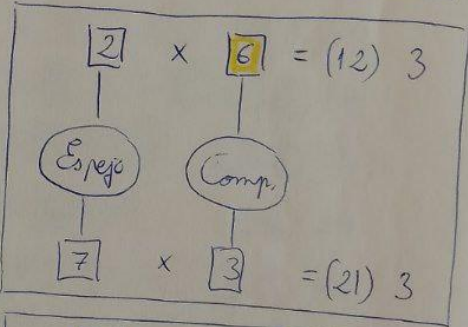 2 x 6 = (12) 3
Espejo Comp.
7 x 3 = (21) 3